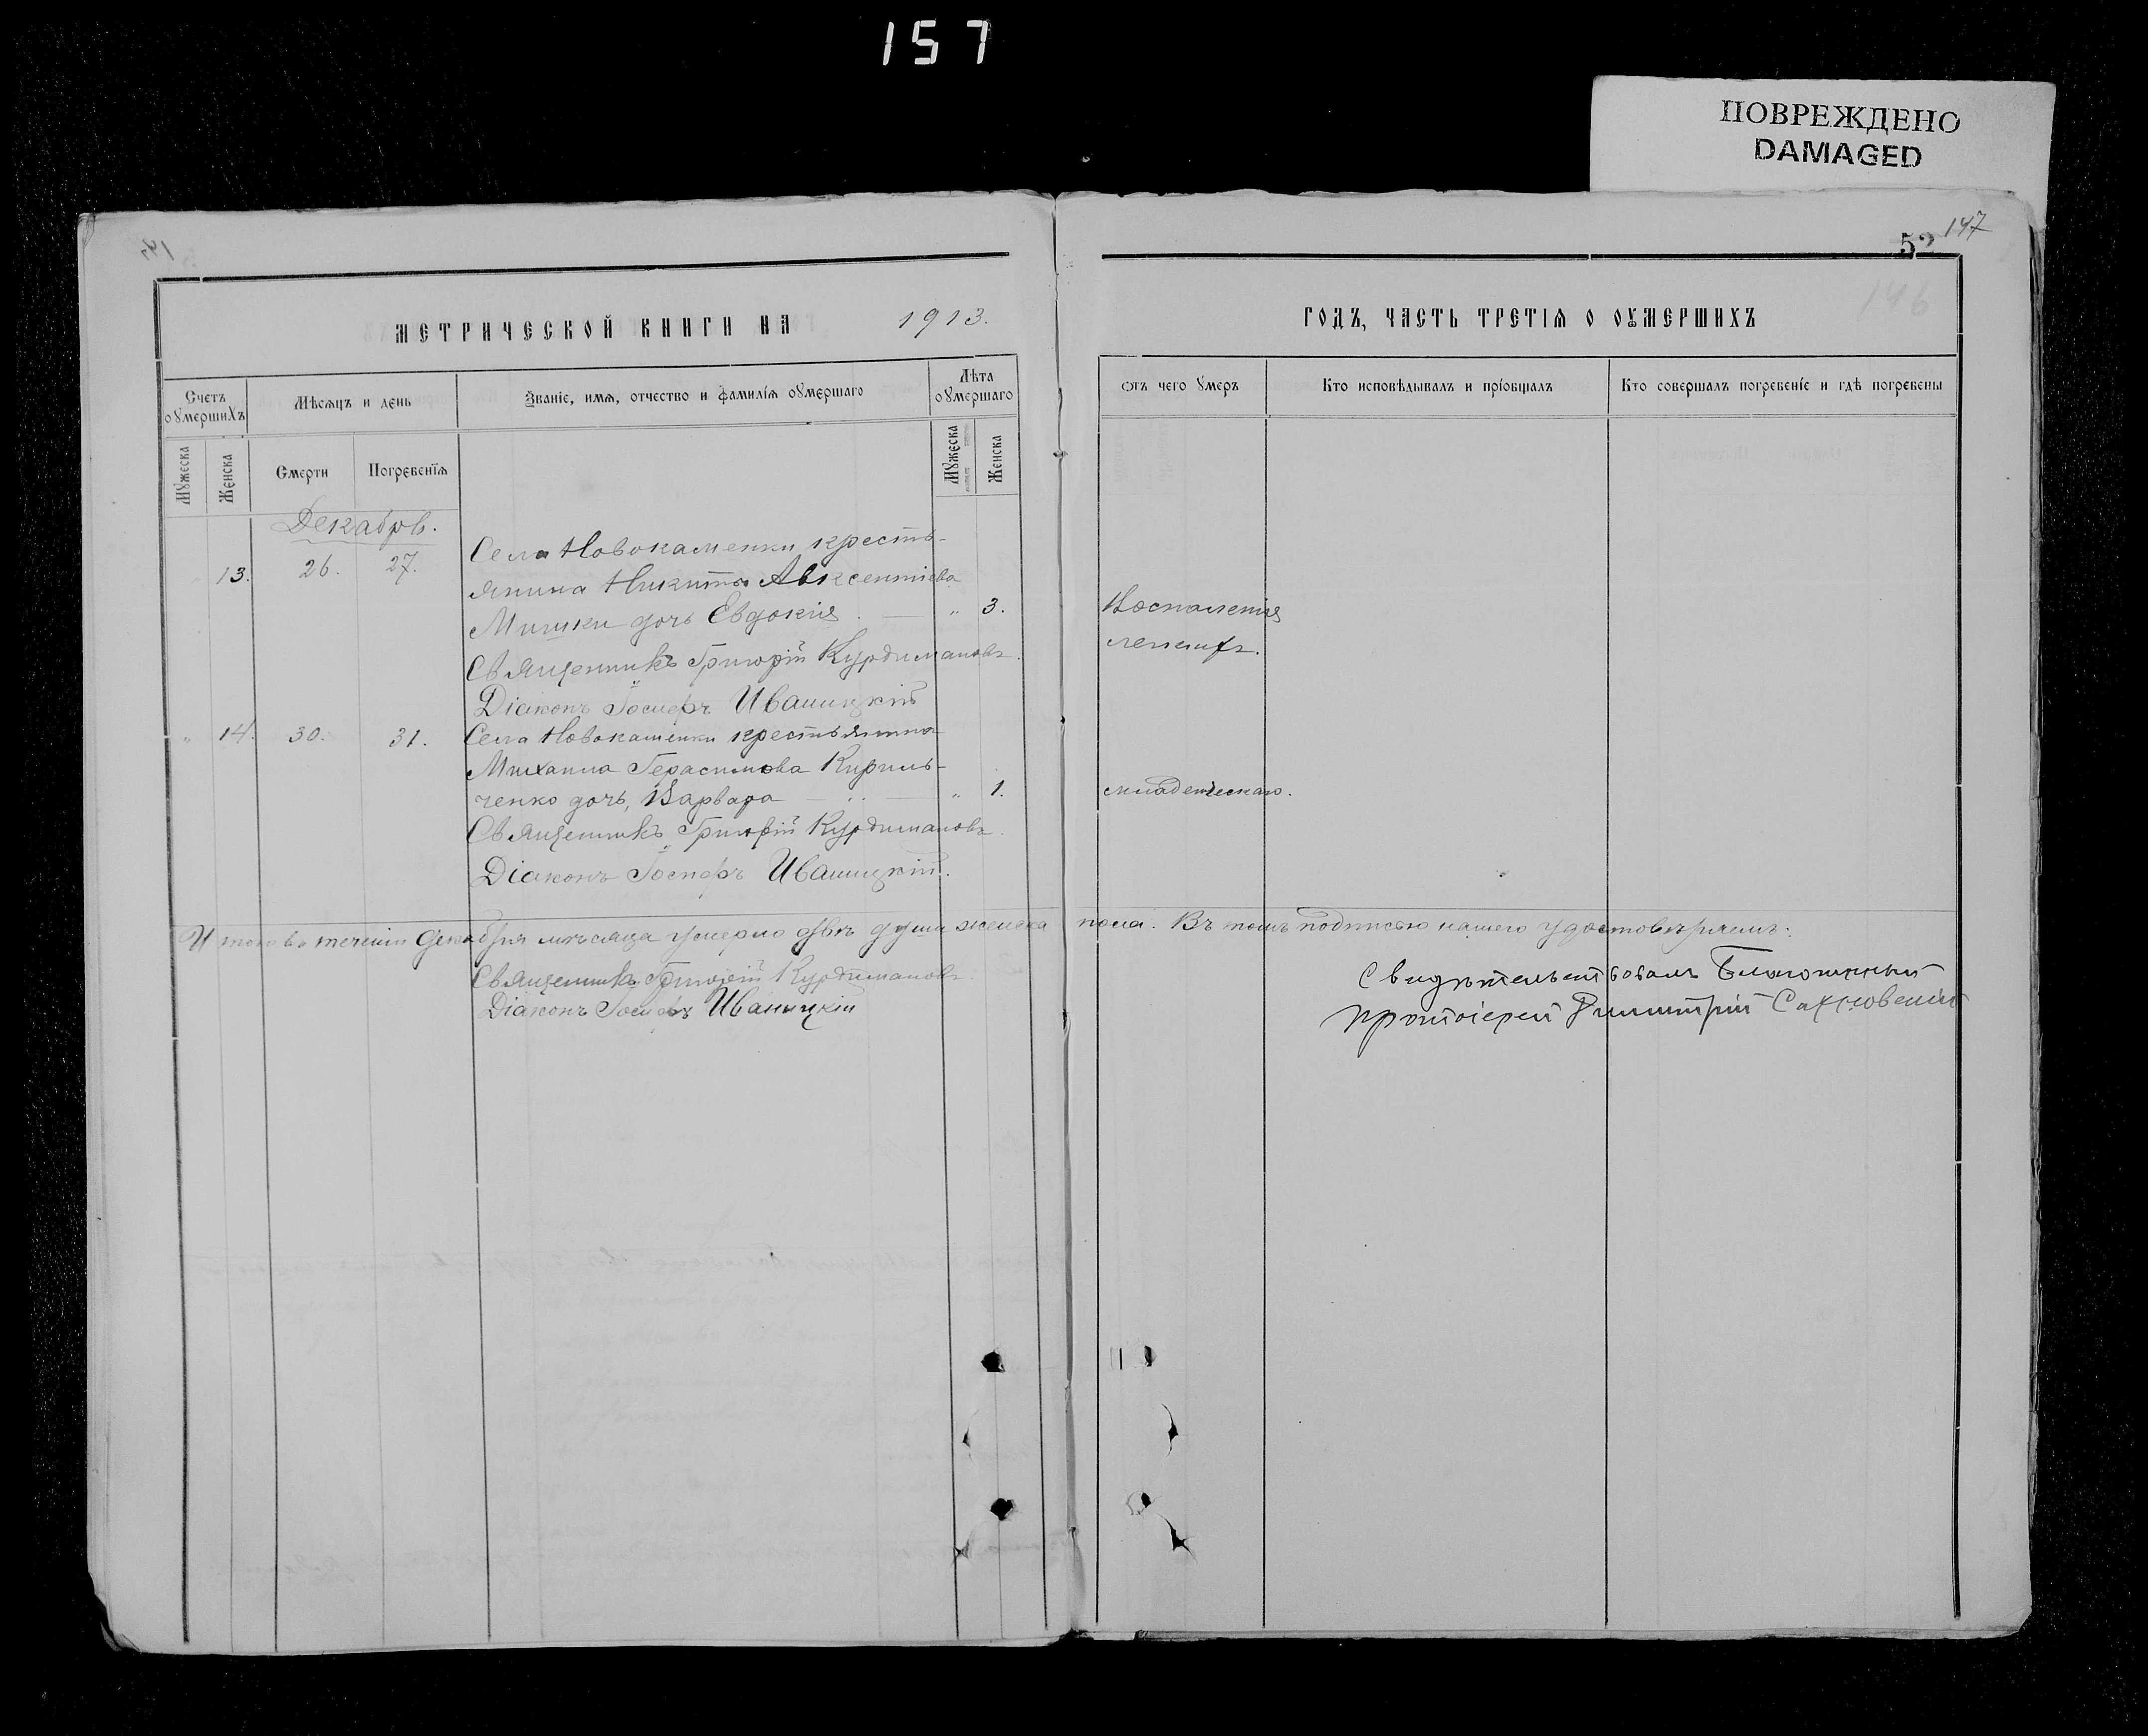 157
ПОВРЕЖДЕНО
DAMAGED
147
52
146
МЕТРИЧЕСКОЙ КНИГИ НА 1913.
ГОДЪ, ЧАСТЬ ТРЕТІѦ О ОУМЕРШИХЪ
Счетъ оумершихъ
Мѣсѧцъ и день
Званіе, имѧ, отчество и фамиліѧ оумершаго
Лѣта оумершаго
Отъ чего умеръ
Кто исповѣдывалъ и пріобщалъ
Кто совершалъ погребеніе и гдѣ погребены
Мужеска
Женска
Смерти
Погребеніѧ
Мужеска
Женска
Декабрь.
13. 26. 27. Села Новокаменки кресть-
янина Никиты Авксентіева
Мишки дочь Евдокія — " 3. Воспаленія
легкихъ.
Священникъ Григорій Курдимановъ.
Діаконъ Іосифъ Иваницкій
" 14. 30. 31. Села Новокаменки крестьянина
Михаила Герасимова Кириль-
ченко дочь, Варвара — " — " 1. младенческаго.
Священникъ Григорій Курдимановъ.
Діаконъ Іосифъ Иваницкій.
Итого въ теченіи Декабря мѣсяца умерло двѣ души женска пола. Въ томъ подписью нашею удостовѣряемъ:
Священникъ Григорій Курдимановъ.
Діаконъ Іосифъ Иваницкій
Свидѣтельствовалъ Благочинный
Протоіерей Димитрій